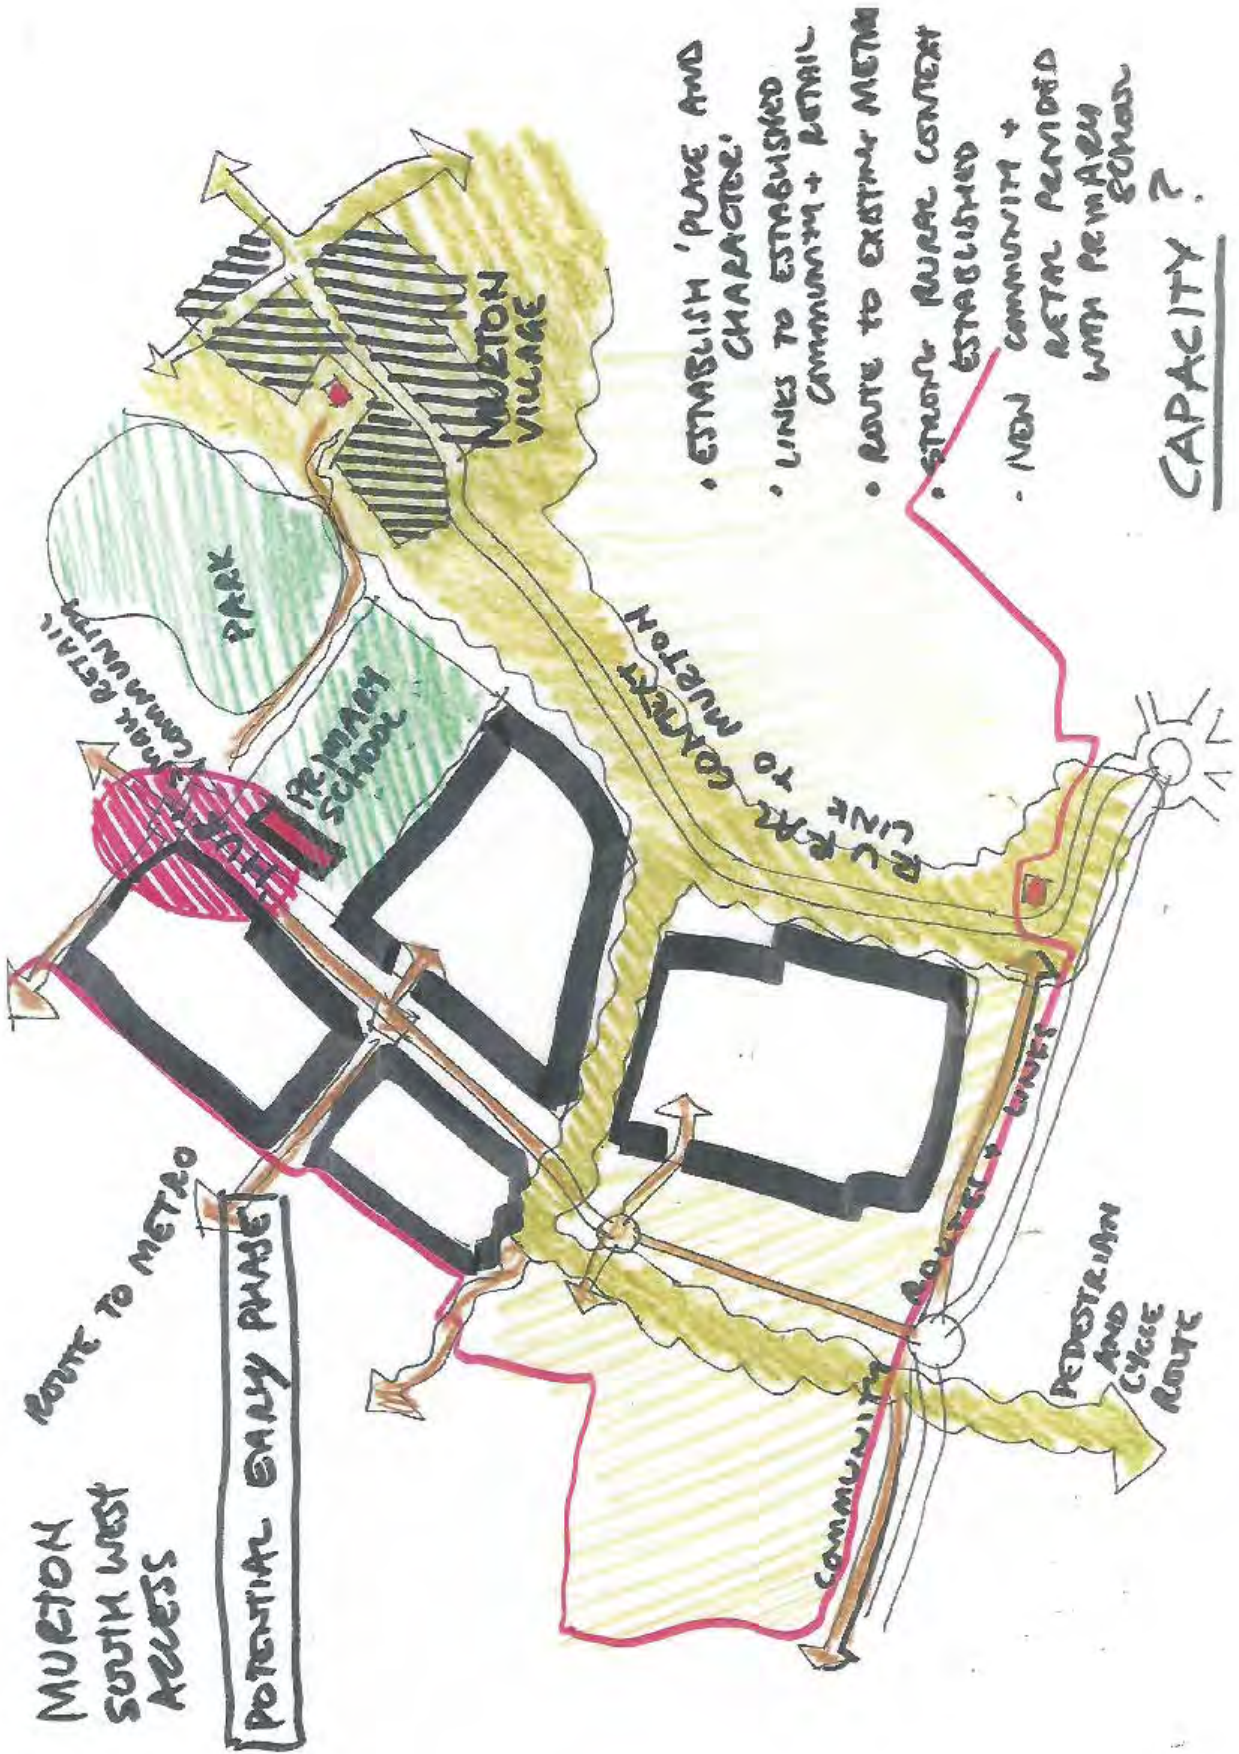 MURTON
SOUTH WEST
ACCESS
ROUTE TO METRO
POTENTIAL EARLY PHASE
SMALL RETAIL
+ COMMUNITY
HUB
PARK
PRIMARY
SCHOOL
MURTON
VILLAGE
RURAL CONTEXT
LINK TO MURTON
COMMUNITY ROUTES + LINKS
PEDESTRIAN
AND
CYCLE
ROUTE
• ESTABLISH 'PLACE AND
CHARACTER'
• LINKS TO ESTABLISHED
COMMUNITY + RETAIL
• ROUTE TO EXISTING METRO
• STRONG RURAL CONTEXT
ESTABLISHED
• NEW COMMUNITY +
RETAIL PROVIDED
WITH PRIMARY
SCHOOL
CAPACITY ?